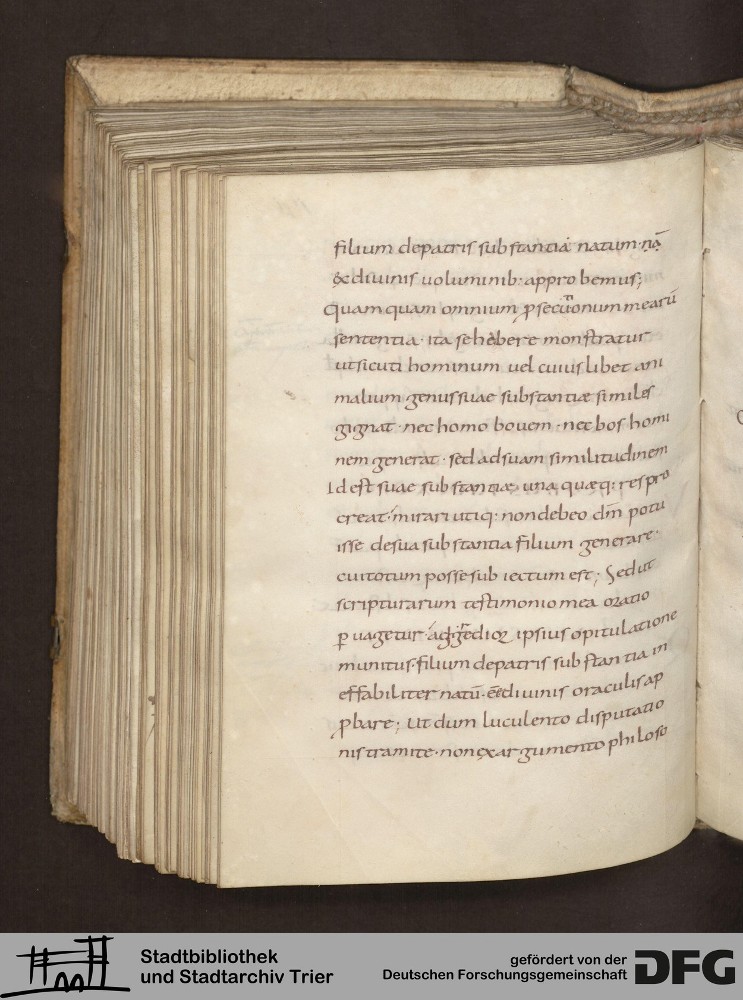 filium depatris substantia natum· nā
&divinis uoluminib: approbemus;
Quam quam omnium ꝑsecutionum mearū
sententia· ita se habere monstratur
ut sicuti hominum uel cuius libet ani
malium genus suae substantiae similes
gignat· nec homo bouem· nec bos homi
nem generat· sed ad suam similitudinem
Id est suae substantiae una quæq: res pro
creat· mirari utiq· non debeo dm̄ potu
isse desua substantia filium generare·
cui totum posse sub iectum est; Sed ut
scripturarum testimonio mea oratio
ꝑ uagetur· aggrediar ipsius opitulatione
munitus· filium depatris substantia in
effabiliter natū· eē divinis oraculis ap
ꝓbare; ut dum luculento disputatio
nis tramite· non ex argumento philoso
Stadtbibliothek
und Stadtarchiv Trier
gefördert von der
Deutschen Forschungsgemeinschaft
DFG